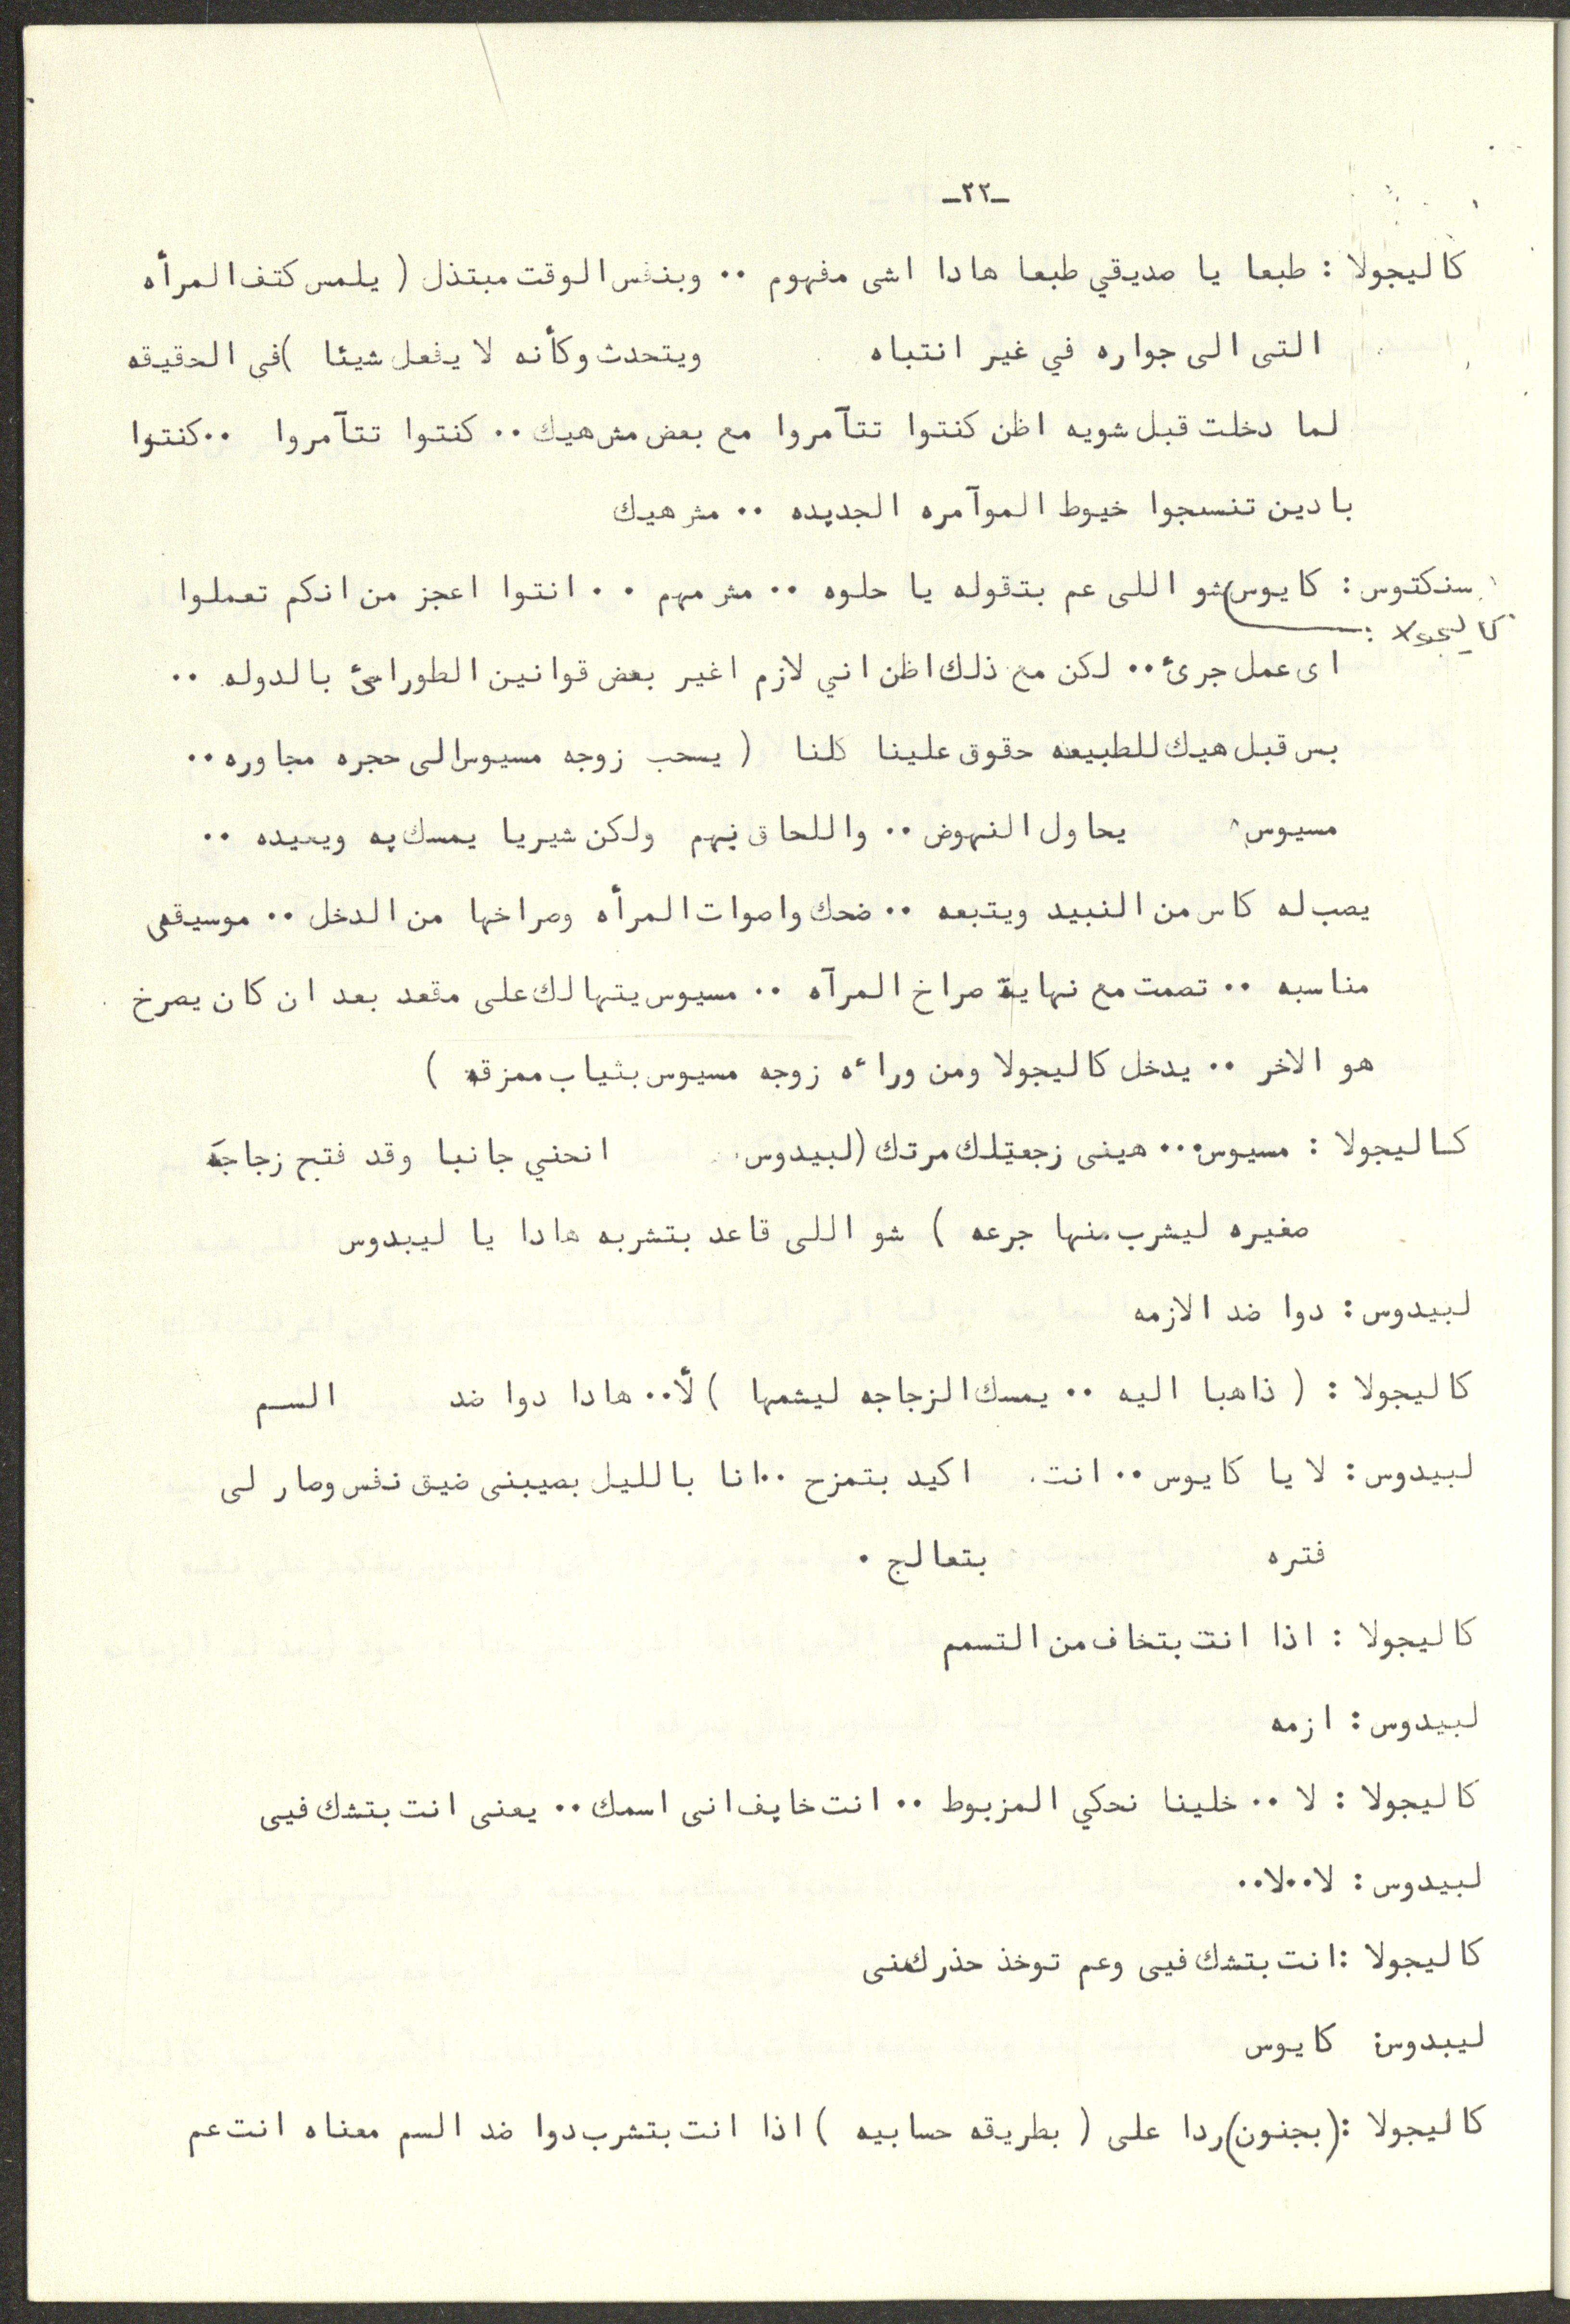 -٢٢-
كاليجولا : طبعا يا صديقي طبعا هادا اشى مفهوم .. وبنفس الوقت مبتذل ( يلمس كتف المرأه
التى الى جواره في غير انتباه ويتحدث وكأنه لا يفعل شيئا )فى الحقيقه
لما دخلت قبل شويه اظن كنتوا تتآمروا مع بعض مش هيك .. كنتوا تتآمروا ..كنتوا
بادين تنسجوا خيوط الموآمره الجديده .. مش هيك
سنكتوس : كايوس
كاليجولا : شو اللى عم بتقوله يا حلوه .. مش مهم .. انتوا اعجز من انكم تعملوا
اى عمل جرئ .. لكن مع ذلك اظن اني لازم اغير بعض قوانين الطورائ بالدوله ..
بس قبل هيك للطبيعه حقوق علينا كلنا ( يسحب زوجه مسيوس الى حجره مجاوره ..
مسيوس يحاول النهوض .. واللحاق بهم ولكن شيريا يمسك به ويعيده ..
يصب له كاس من النبيد ويتبعه .. ضحك واصوات المرأه وصراخها من الدخل .. موسيقى
مناسبه .. تصمت مع نهاية صراخ المرآه .. مسيوس يتهالك على مقعد بعد ان كان يصرخ
هو الاخر .. يدخل كاليجولا ومن وراءه زوجه مسيوس بثياب ممزقه )
كاليجولا : مسيوس ... هينى رجعتلك مرتك (لبيدوس انحني جانبا وقد فتح زجاجه
صغيره ليشرب منها جرعه ) شو اللى قاعد بتشربه هادا يا ليبدوس
لبيدوس : دوا ضد الازمه
كاليجولا : ( ذاهبا اليه .. يمسك الزجاجه ليشمها ) لأ.. هادا دوا ضد السم
لبيدوس : لا يا كايوس .. انت اكيد بتمزح ..انا بالليل بصيبنى ضيق نفس وصار لى
فتره بتعالج .
كاليجولا : اذا انت بتخاف من التسمم
لبيدوس : ازمه
كاليجولا : لا .. خلينا نحكي المزبوط .. انت خايف انى اسمك .. يعنى انت بتشك فيى
لبيدوس : لا..لا..
كاليجولا :انت بتشك فيى وعم توخذ حذرك منى
ليبدوس: كايوس
كاليجولا :(بجنون) ردا على ( بطريقه حسابيه ) اذا انت بتشرب دوا ضد السم معناه انت عم